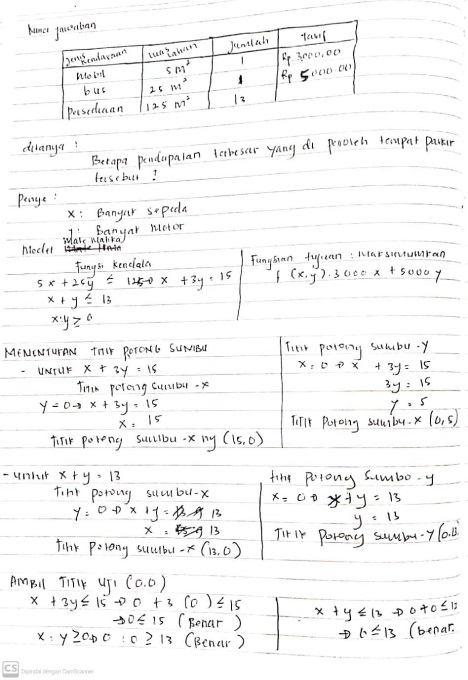 Kunci jawaban
Jenis Kendaraan luas lahan Jumlah Tarif
Mobil 5 m² 1 Rp 3000,00
bus 25 m² 1 Rp 5000.00
Persediaan 125 m² 13
ditanya :
Berapa pendapatan terbesar yang di peroleh tempat parkir
tersebut ?
Penye :
x : Banyak sepeda
y : Banyak Motor
Model Matematika
Fungsi kendala
x + 3y = 15
x + y ≤ 13
x.y ≥ 0
Fungsian tujuan : Maksimumkan
f (x.y) . 3000 x + 5000 y
MENENTUKAN TITIK POTONG SUMBU
- UNTUK x + 3y = 15
Titik potong sumbu -x
y = 0 → x + 3y = 15
x = 15
titik potong sumbu -x ny (15,0)
Titik potong sumbu -y
x = 0 → x + 3y = 15
3y = 15
y = 5
Titik Potong sumbu -x (0,5)
- untuk x + y = 13
titik potong sumbu -x
y = 0 → x + y = 13
x = 13
titik potong sumbu -x (13,0)
titik potong sumbo -y
x = 0 → y = 13
y = 13
Titik potong sumbu -y
AMBIL TITIK UJI (0.0)
x + 3y ≤ 15 → 0 + 3 (0) ≤ 15
→ 0 ≤ 15 (Benar)
x . y ≥ 0 → 0 : 0 ≥ 13 (Benar)
x + y ≤ 13 → 0 + 0 ≤ 13
→ 0 ≤ 13 (benar.
CS Dipindai dengan CamScanner